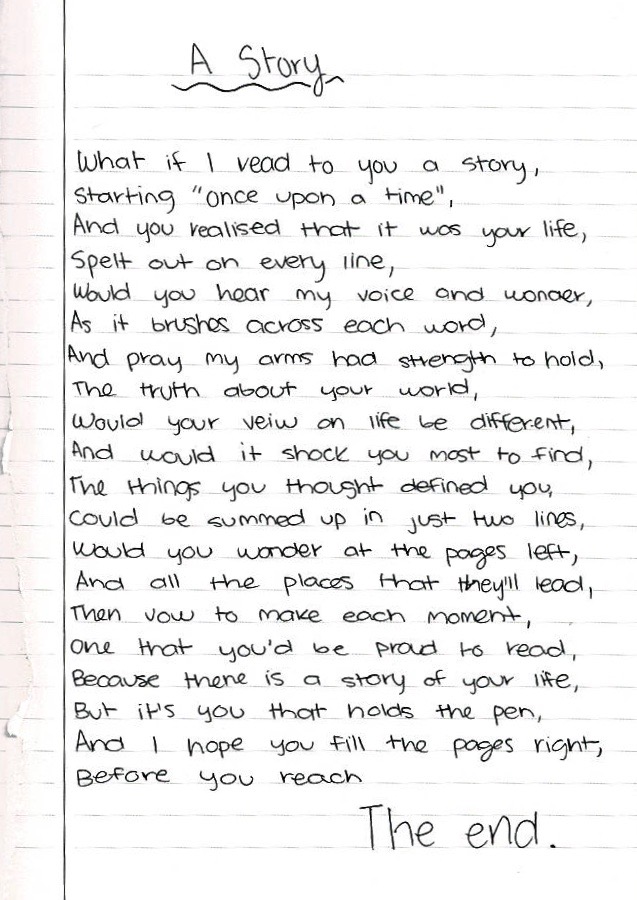 A Story
What if I read to you a story,
Starting "once upon a time",
And you realised that it was your life,
Spelt out on every line,
Would you hear my voice and wonder,
As it brushes across each word,
And pray my arms had strength to hold,
The truth about your world,
Would your veiw on life be different,
And would it shock you most to find,
The things you thought defined you,
Could be summed up in just two lines,
Would you wonder at the pages left,
And all the places that they'll lead,
Then vow to make each moment,
One that you'd be proud to read,
Because there is a story of your life,
But it's you that holds the pen,
And I hope you fill the pages right,
Before you reach
The end.